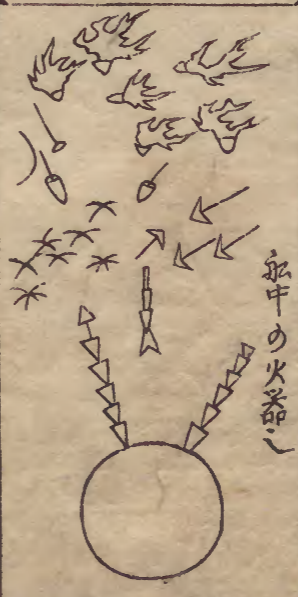 船中の火器之